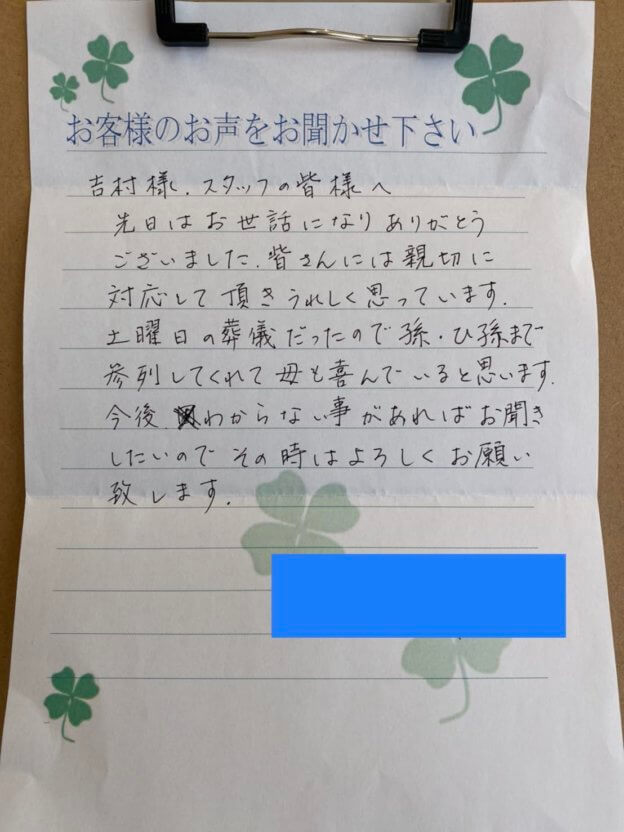 お客様のお声をお聞かせ下さい
吉村様、スタッフの皆様へ
先日はお世話になりありがとう
ございました。皆さんには親切に
対応して頂きうれしく思っています。
土曜日の葬儀だったので孫・ひ孫まで
参列してくれて母も喜んでいると思います。
今後、わからない事があればお聞き
したいのでその時はよろしくお願い
致します。